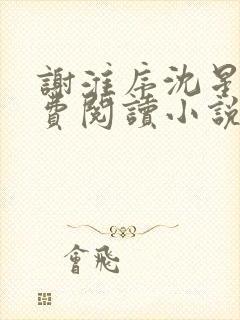 謝淮序沈星
費閱讀小說
會飛